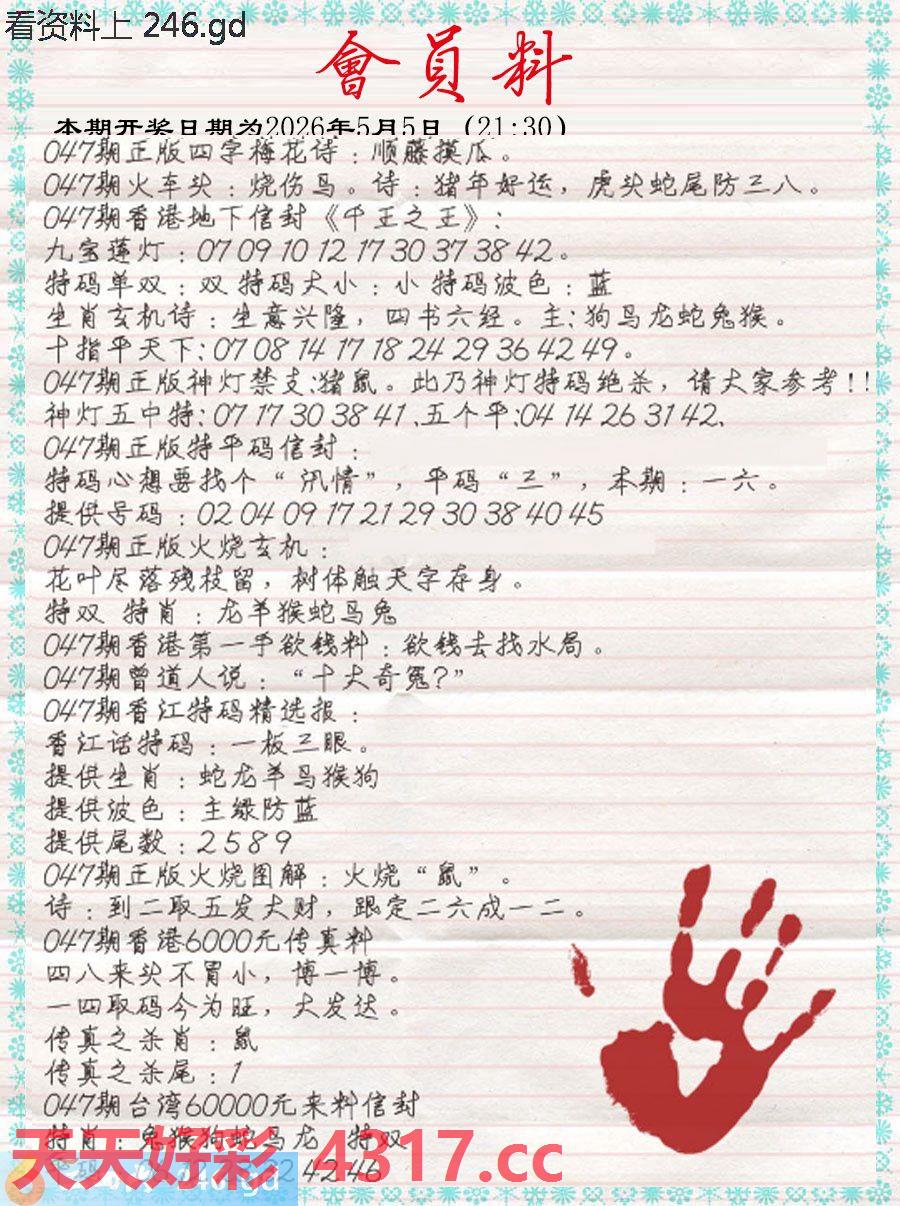 看资料上 246.gd
會員料
本期开奖日期为2026年5月5日 (21:30)
047期正版四字梅花诗：顺藤摸瓜。
047期火车头：烧伤鸟。诗：猪年好运，虎头蛇尾防三八。
047期香港地下信封《千王之王》：
九宝莲灯：07 09 10 12 17 30 37 38 42。
特码单双：双 特码大小：小 特码波色：蓝
生肖玄机诗：生意兴隆，四书六经。主：狗马龙蛇兔猴。
十指平天下：07 08 14 17 18 24 29 36 42 49。
047期正版神灯禁支:猪鼠。此乃神灯特码绝杀，请大家参考!!
神灯五中特：07 17 30 38 41、五个平:04 14 26 31 42、
047期正版特平码信封：
特码心想要找个“汛情”，平码“三”，本期：一六。
提供号码：02 04 09 17 21 29 30 38 40 45
047期正版火烧玄机：
花叶尽落残枝留，树体触天字存身。
特双 特肖：龙羊猴蛇马兔
047期香港第一手欲钱料：欲钱去找水局。
047期曾道人说：“十大奇冤?”
047期香江特码精选报：
香江话特码：一板三眼。
提供生肖：蛇龙羊马猴狗
提供波色：主绿防蓝
提供尾数：2 5 8 9
047期正版火烧图解：火烧“鼠”。
诗：到二取五发大财，跟定二六成一二。
047期香港6000元传真料
四八来头不冒小，博一博。
一四取码今为旺，大发达。
传真之杀肖：鼠
传真之杀尾：1
047期台湾60000元来料信封
特肖：兔猴狗蛇马龙 特双
天天好彩 4317.cc
42 46
246.gd